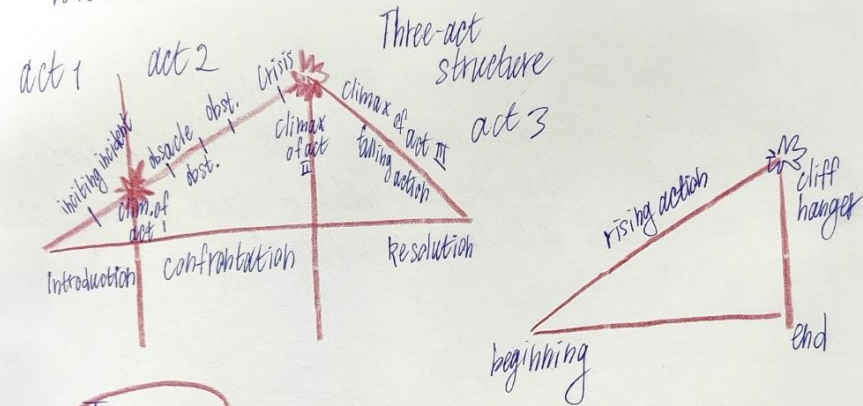 Three-act
structure
act 1
act 2
act 3
inciting incident
clim. of
act I
obsacle
obst.
obst.
crisis
climax
of act
II
climax of act III
falling action
Introduction
confrontation
Resolution
rising action
cliff
hanger
beginning
end